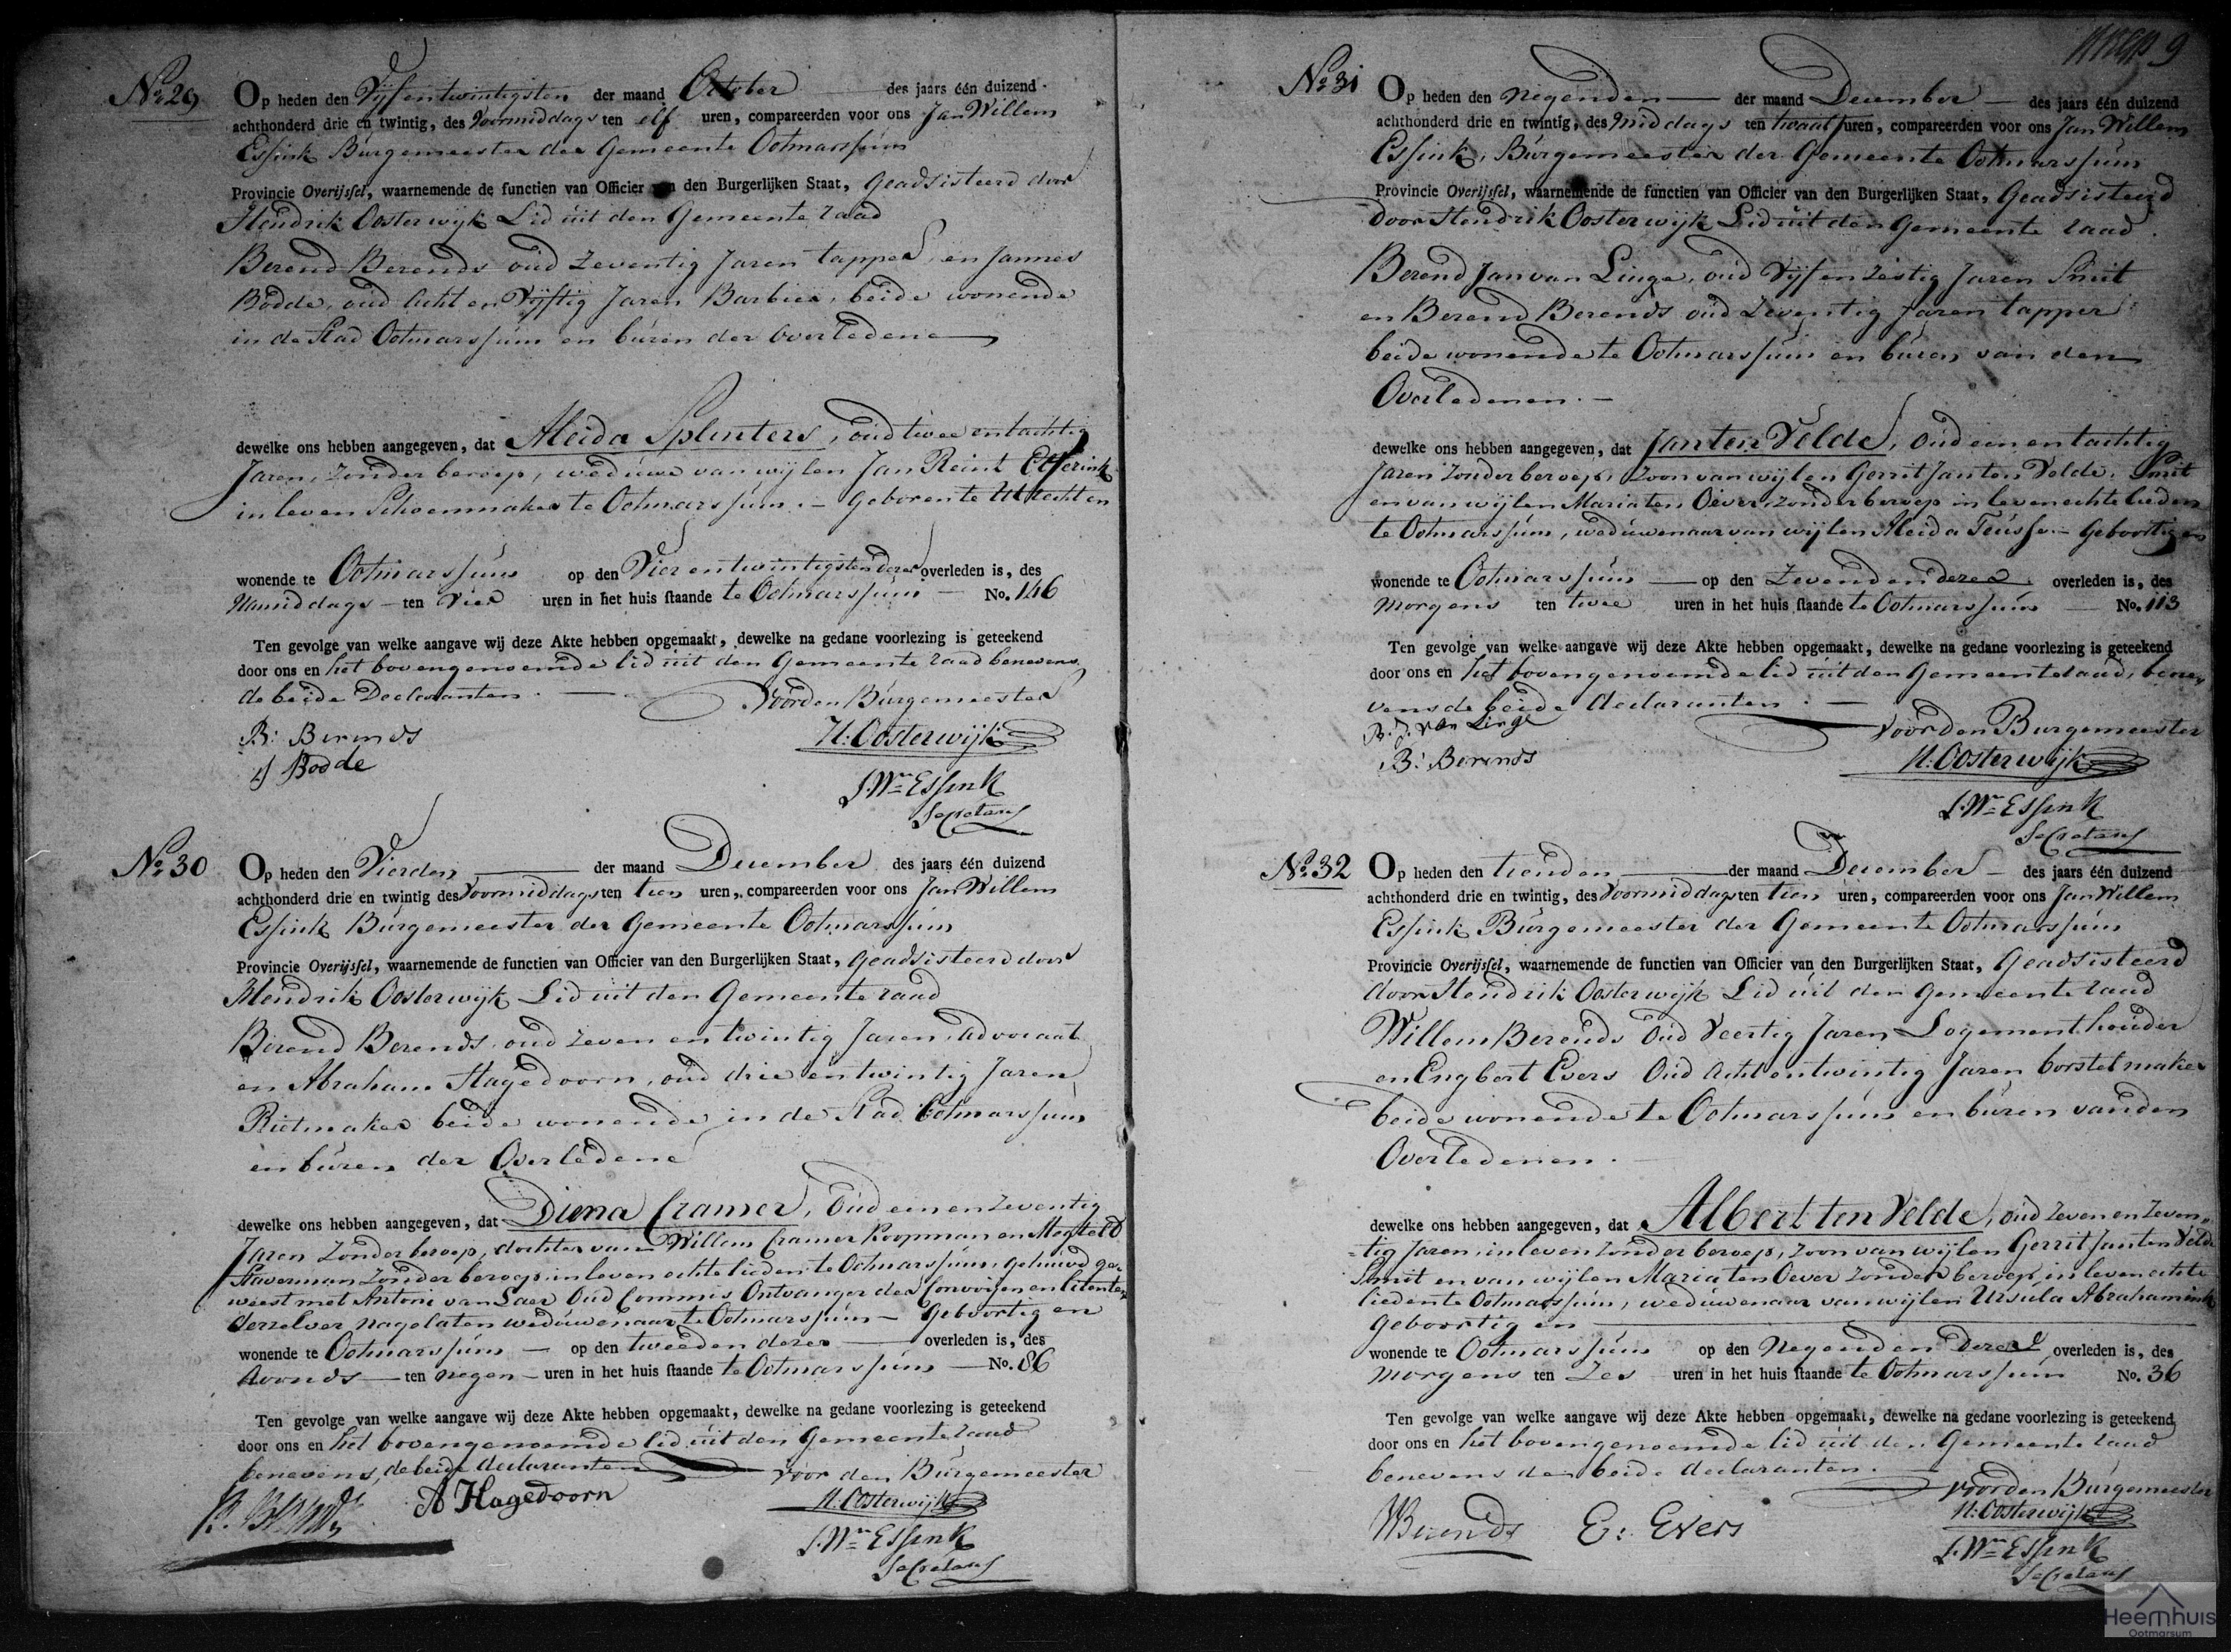 No. 29
Op heden den Vijf en twintigsten der maand October des jaars één duizend
achthonderd drie en twintig, des Voormiddags ten elf uren, compareerden voor ons Jan Willem
Essink Burgemeester der Gemeente Ootmarssum
Provincie Overijssel, waarnemende de functien van Officier van den Burgerlijken Staat, Geadsisteerd door
Hendrik Oosterwijk Lid uit den Gemeente raad
Berend Berends oud Zeventig Jaren tapper, en Jannes
Bodde, oud Acht en Vijftig Jaren Barbier, beide wonende
in de Stad Ootmarssum en buren der Overledene
dewelke ons hebben aangegeven, dat Aleida Splinters, oud twee en tachtig
Jaren, Zonder beroep, weduwe van wijlen Jan Reint Elferink
in leven Schoenmaker te Ootmarssum. – Geboren te Utrecht en
wonende te Ootmarssum op den Vier en twintigsten dezer overleden is, des
Namiddags – ten vier uren in het huis staande te Ootmarssum – No. 146
Ten gevolge van welke aangave wij deze Akte hebben opgemaakt, dewelke na gedane voorlezing is geteekend
door ons en het bovengenoemde lid uit den Gemeente raad benevens
de beide Declaranten. Voor den Burgemeester
B: Berends
H: Oosterwijk
J Bodde
J. Wm Essink
Secretaris
No. 30
Op heden den Vierden der maand December des jaars één duizend
achthonderd drie en twintig des Voormiddags ten tien uren, compareerden voor ons Jan Willem
Essink Burgemeester der Gemeente Ootmarssum
Provincie Overijssel, waarnemende de functien van Officier van den Burgerlijken Staat, Geadsisteerd door
Hendrik Oosterwijk Lid uit den Gemeente raad
Berend Berends oud Zeven en twintig Jaren, advocaat
en Abraham Hagedoorn, oud drie en twintig Jaren,
Rietmaker beide wonende in de Stad Ootmarssum
en buren der Overledene
dewelke ons hebben aangegeven, dat Diena Cramer, Oud een en Zeventig
Jaren Zonder beroep, dochter van Willem Cramer Koopman en Megteld
Staverman Zonder beroep in leven echte lieden te Ootmarssum, gehuwd ge-
weest met Antoni van Laer Oud Commis Ontvanger der Convoijen en licenten
derzelver nagelaten weduwenaar te Ootmarssum – Geboortig en
wonende te Ootmarssum – op den tweeden dezer overleden is, des
Avonds – ten negen – uren in het huis staande te Ootmarssum – No. 86
Ten gevolge van welke aangave wij deze Akte hebben opgemaakt, dewelke na gedane voorlezing is geteekend
door ons en het bovengenoemde lid uit den Gemeente raad
benevens, de beide declaranten voor den Burgemeester
A Hagedoorn
H. Oosterwijk
J. Wm Essink
Secretaris
9
No. 31
Op heden den Negenden der maand December – des jaars één duizend
achthonderd drie en twintig, des Middags ten twaalf uren, compareerden voor ons Jan Willem
Essink, Burgemeester der Gemeente Ootmarssum
Provincie Overijssel, waarnemende de functien van Officier van den Burgerlijken Staat, Geadsisteerd
door Hendrik Oosterwijk Lid uit den Gemeente raad.
Berend Jan van Linge, oud Vijf en Zestig Jaren Smit
en Berend Berends oud Zeventig Jaren tapper
beide wonende te Ootmarssum en buren van den
Overledenen. –
dewelke ons hebben aangegeven, dat Jan ten Velde, Oud een en tachtig
Jaren Zonder beroep, Zoon van wijlen Gerrit Jan ten Velde, Smit
en van wijlen Maria ten Oever Zonder beroep in leven echte lieden
te Ootmarssum, weduwenaar van wijlen Aleida Teusse – Geboortig en
wonende te Ootmarssum – op den Zevenden dezer overleden is, des
Morgens ten twee uren in het huis staande te Ootmarssum – No. 113
Ten gevolge van welke aangave wij deze Akte hebben opgemaakt, dewelke na gedane voorlezing is geteekend
door ons en het bovengenoemde lid uit den Gemeente raad, bene-
vens de beide declaranten. – voor den Burgemeester
B. J. van Linge
H: Oosterwijk
B: Berends
J. Wm Essink
Secretaris
No. 32
Op heden den tienden der maand December – des jaars één duizend
achthonderd drie en twintig, des Voormiddags ten tien uren, compareerden voor ons Jan Willem
Essink Burgemeester der Gemeente Ootmarssum
Provincie Overijssel, waarnemende de functien van Officier van den Burgerlijken Staat, Geadsisteerd
door Hendrik Oosterwijk Lid uit den Gemeente raad
Willem Berends Oud Veertig Jaren Logementhouder
en Engbert Evers Oud Acht en twintig Jaren borstelmaker
beide wonende te Ootmarssum en buren van den
Overledenen.
dewelke ons hebben aangegeven, dat Albert ten Velde, oud Zeven en Zeven-
tig Jaren, in leven Zonder beroep, Zoon van wijlen Gerrit Jan ten Velde
Smit en van wijlen Maria ten Oever Zonder beroep, in leven echte
lieden te Ootmarssum, weduwenaar van wijlen Ursula Abrahamink
Geboortig en
wonende te Ootmarssum op den Negenden dezer overleden is, des
Morgens ten Zes uren in het huis staande te Ootmarssum No. 36
Ten gevolge van welke aangave wij deze Akte hebben opgemaakt, dewelke na gedane voorlezing is geteekend
door ons en het bovengenoemde lid uit den Gemeente raad
benevens de beide declaranten.
voor den Burgemeester
WBerends E: Evers
H: Oosterwijk
J. Wm Essink
Secretaris
Heemhuis
Ootmarsum